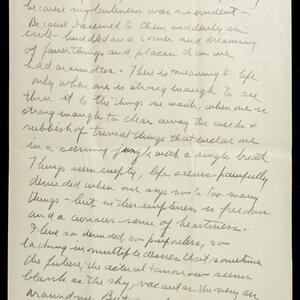 because my loneliness was so evident -
Because I seemed to them suddenly an
exile huddled in a corner and dreaming
of finer things and places than we
had around us. There is meaning to life
only when one is strong enough to see
thru it to the things one wants, when one is
strong enough to clear away the weeds &
rubbish of trivial things that enclose one
in a seeming jungle with a single breath.
Things seem empty, life seems painfully
denuded when one says no to too many
things - but in the emptiness is freedom
and a curious sense of
I live so denuded, so purposeless, so
lacking in multiple desires that sometimes
the future, the actual tomorrow seems
blank as the sky, vacant as the very air
around me. But